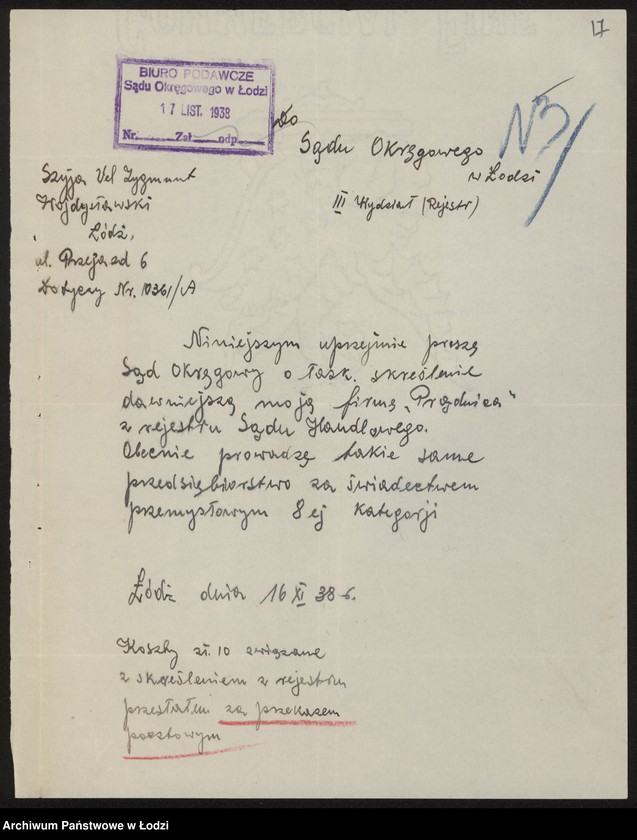 17
BIURO PODAWCZE
Sądu Okręgowego w Łodzi
17 LIST. 1938
Nr. Zał odp.
Do
Sądu Okręgowego
w Łodzi
III Wydział (Rejestr)
Szyja Vel Zygmunt
Wojdysławski
Łódź,
ul. Przejazd 6
Dotyczy Nr. 10361/A
Niniejszym uprzejmie proszę
Sąd Okręgowy o łask. skreślenie
dawniejszą moją firmę „Prądnica"
z rejestru Sądu Handlowego.
Obecnie prowadzę takie same
przedsiębiorstwo za świadectwem
przemysłowym 8ej kategorji
Łódź dnia 16 XI 38 r.
Koszty zł. 10 związane
z skreśleniem z rejestru
przesłałem za przekazem
pocztowym
Archiwum Państwowe w Łodzi